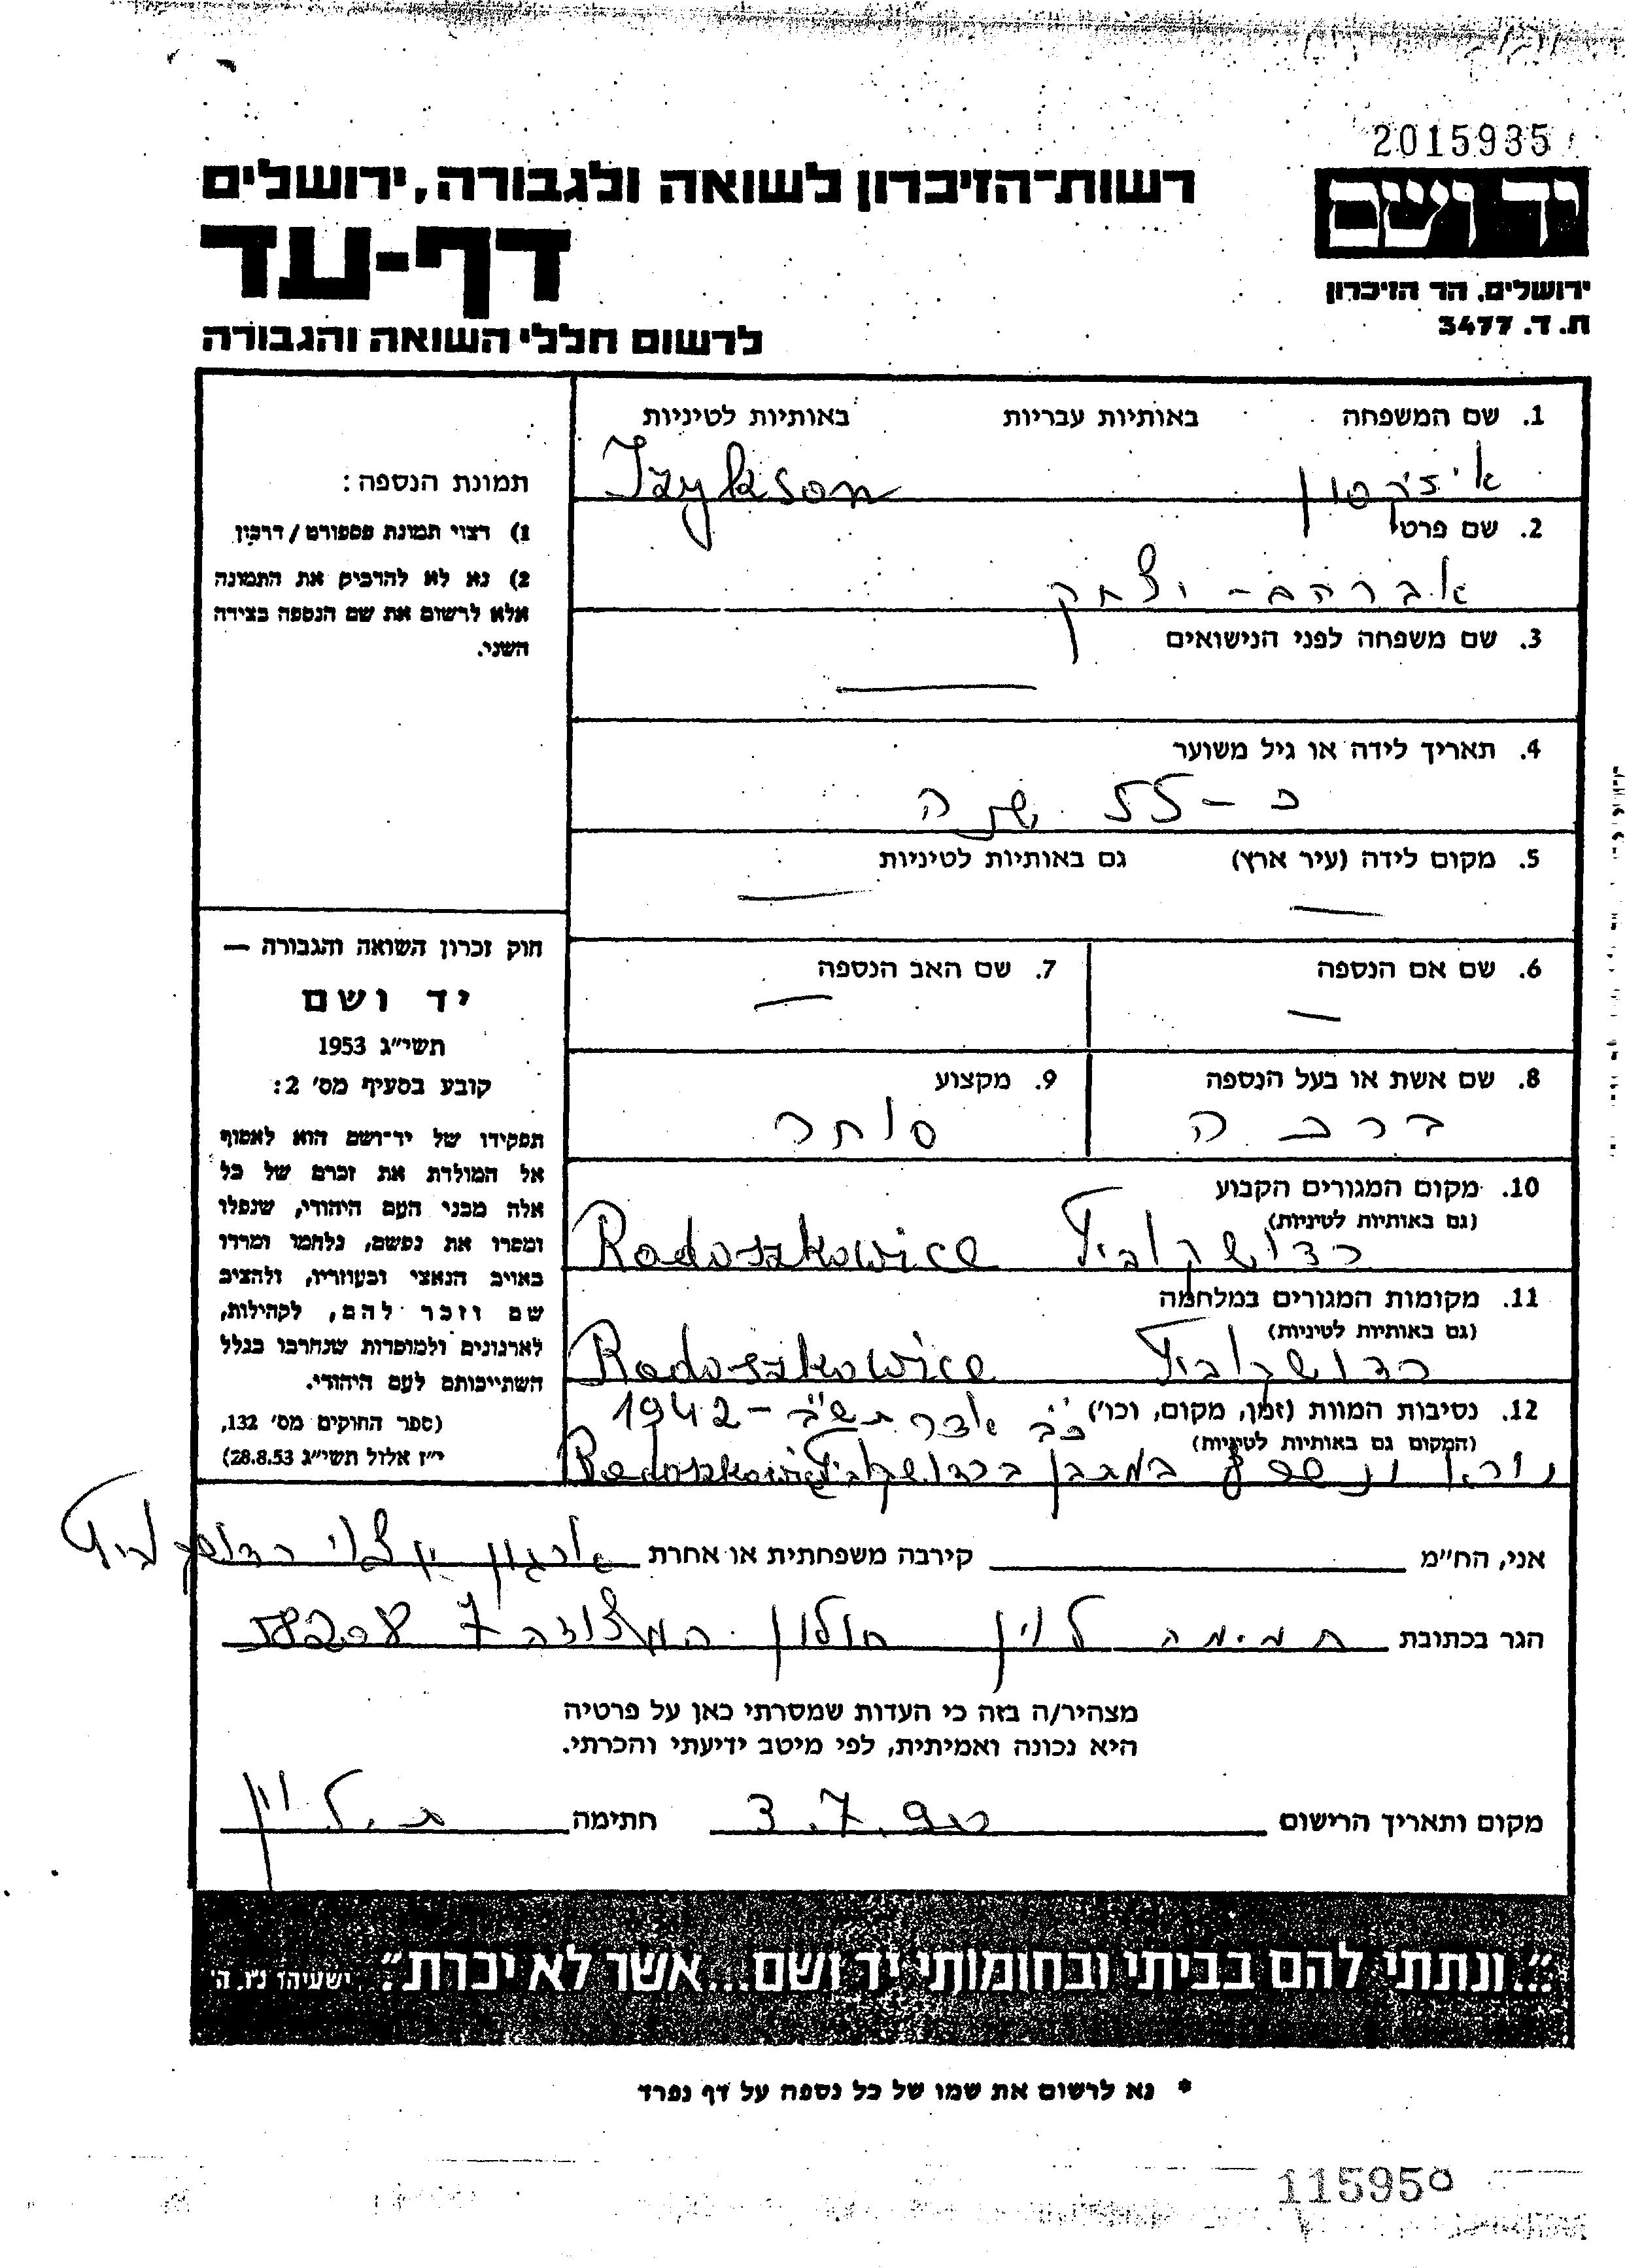 2015935
רשות־הזיכרון לשואה ולגבורה, ירושלים
יד ושם
דף-עד
ירושלים, הר הזיכרון
ת. ד. 3477
לרשום חללי השואה והגבורה
1. שם המשפחה באותיות עבריות באותיות לטיניות
איזיקסון Izykson
2. שם פרטי
אברהם - יצחק
3. שם משפחה לפני הנישואים
—
4. תאריך לידה או גיל משוער
כ - 55 שנה
5. מקום לידה (עיר ארץ) גם באותיות לטיניות
— —
6. שם אם הנספה
—
7. שם האב הנספה
—
8. שם אשת או בעל הנספה
9. מקצוע
סוחר
10. מקום המגורים הקבוע
(גם באותיות לטיניות)
רדושקוביץ Radoszkowice
11. מקומות המגורים במלחמה
(גם באותיות לטיניות)
רדושקוביץ Radoszkowice
12. נסיבות המוות (זמן, מקום, וכו') כ"ב אדר תש"ב - 1942
(המקום גם באותיות לטיניות)
נורה ונשרף במגבן ברדושקוביץ Radoszkowice
תמונת הנספה:
1) רצוי תמונת פספורט / דרכון
2) נא לא להדביק את התמונה
אלא לרשום את שם הנספה בצידה
השני.
חוק זכרון השואה והגבורה —
יד ושם
תשי"ג 1953
קובע בסעיף מס' 2:
תפקידו של יד־ושם הוא לאסוף
אל המולדת את זכרם של כל
אלה מבני העם היהודי, שנפלו
ומסרו את נפשם, נלחמו ומרדו
באויב הנאצי ובעוזריו, ולהציב
שם וזכר להם, לקהילות,
לארגונים ולמוסדות שנחרבו בגלל
השתייכותם לעם היהודי.
(ספר החוקים מס' 132,
י"ז אלול תשי"ג 28.8.53)
אני, הח"מ קירבה משפחתית או אחרת ארגון יוצאי רדושקוביץ
הגר בכתובת תמימה לוין חולון המצודה 7 58208
מצהיר/ה בזה כי העדות שמסרתי כאן על פרטיה
היא נכונה ואמיתית, לפי מיטב ידיעתי והכרתי.
מקום ותאריך הרישום 3.7.90 חתימה ת. לוין
"...ונתתי להם בביתי ובחומותי יד ושם...אשר לא יכרת". ישעיהו נו, ה'
* נא לרשום את שמו של כל נספה על דף נפרד
115950